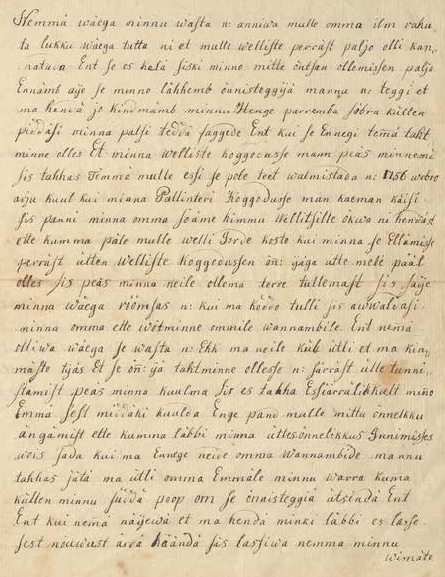 Nemmä wäega minnu wasta n: anniwa mulle omma ilm rahu
ta lukku wäega tutta ni et mulli wellisse perräst paljo olli kan¬
natada Ent se es kelä siski minno mitte öntsan ollemissen paljo
Ennämb aije se minno lähhemb önnisteggijä mannu n: teggi et
ma hendä jo kindmämb minnu Henge parremba söbra külten
piddäsi minna palsi teddä saggide Ent kui se Ennegi temä taht
minne olles Et minna welliste koggodusse mann peäs minnemä
sis tahhas Temmä mulle essi se pole teet walmistada n: 1756 webro
arju kuul kui minna Pallinteri Koggodusse man kaeman käisi
sis panni minna omma soäme himmu Wellitsille okwa ni hendäst
ette kumma päle mulle welli Jorde koste kui minna se Ellämisse
perräst ütten Wellisse koggodussen ön: ijäga utte mele pääl
olles sis peäs minna neile ollema terre tullemast sis saije
minna wäega röömsas n: kui ma koddo tulli sis awwaldasi
minna omma ette wötminne ommile wannambile. Ent nemä
olliwa wäega se wasta n: Ehk ma neile küll ütli et ma kin¬
mäste tijäs Et se ön: ijä tahtminne ollesse n: särräst ülle tunni¬
stamist peäs minna kuulma Sis es tahha Essiärrälikkult minno
Emma sest middäki kuulda Enge pand mulle mittu önnelikku
angamist ette kumma läbbi minna üttes önnelikkus Innimisses
wois sada kui ma Ennege neide omma Wannambide mannu
tahhas jätä ma ütli omma Emmäle minnu warra kuma
külten minnu süddä poop om se önnisteggiä ütsindä Ent
Ent kui nemä näijewä et ma hendä minki läbbi es lasse
sest nouwust ärrä käändä sis lassiwa nemma minnu
wimäte